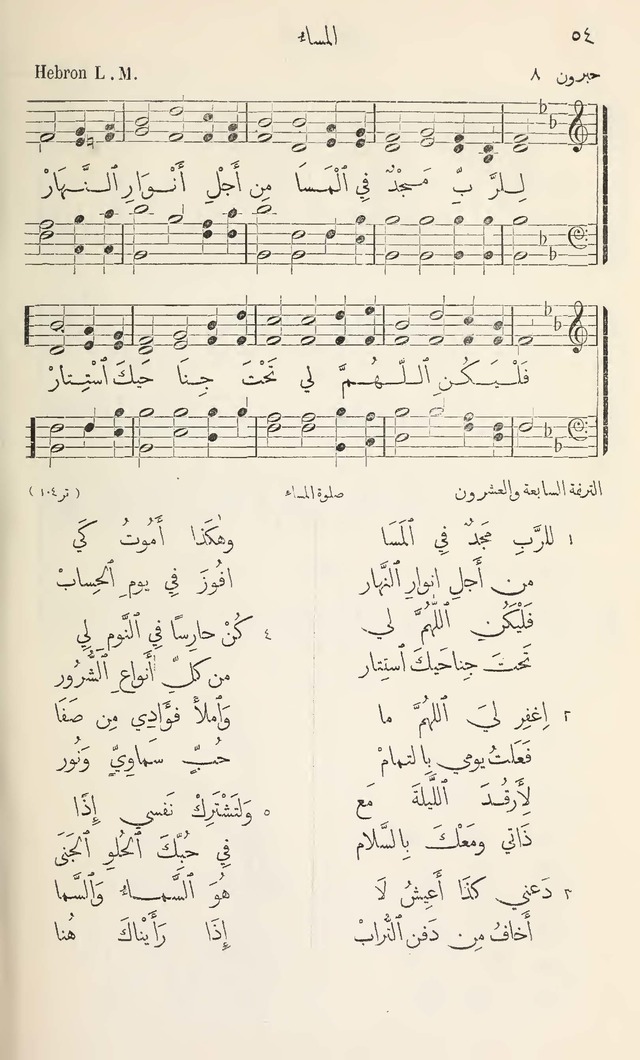 ٥٤ المساء
حبرون ٨ Hebron L. M.
لِلرَّبِّ مَجْدٌ فِي ٱلْمَسَا مِن أَجْلِ أَنْوَارِ ٱلنَّهَارْ
فَلْيَكُنِ ٱللّٰهُمَّ لي تَحْتَ جِنَا حَيكَ ٱسْتِتَارْ
الترنمة السابعة والعشرون صلوة المساء (تر١٠٤)
١ للرَّبِ مَجدٌ فِي ٱلمَسَا
من أَجلِ انوارِ ٱلنَّهار
فَلْيَكُنِ ٱللّٰهُمَّ لي
تَحتَ جناحَيكَ ٱستِتار
٢ اِغفِر ليَ ٱللّٰهُمَّ ما
فَعَلتُ يومي بِالتمامْ
لِأَرقُدَ ٱللَّيلَةَ مَع
ذَاتي ومَعْكَ بِالسَّلام
٣ دَعني كذَا أَعِيشُ لَا
أَخافُ مِن دَفنِ ٱلتُّرابْ
وهٰكذا أَمُوتُ كَي
افُوزَ فِي يومِ ٱلحِسابْ
٤ كُنْ حارِسًا فِي ٱلنَّومِ لِي
من كلِّ أَنواعِ ٱلشُّرُور
وَٱملأْ فوَّادِي مِن صَفَا
حُبٍّ سَماوِيٍّ وَنُور
٥ وَلتَشْتَرِكْ نَفسي إِذًا
فِي حُبِّكَ ٱلحُلوِ ٱلجَنَى
هوَ ٱلسَّماءُ وَٱلسَّما
إِذَا رَأَيْناكَ هُنا